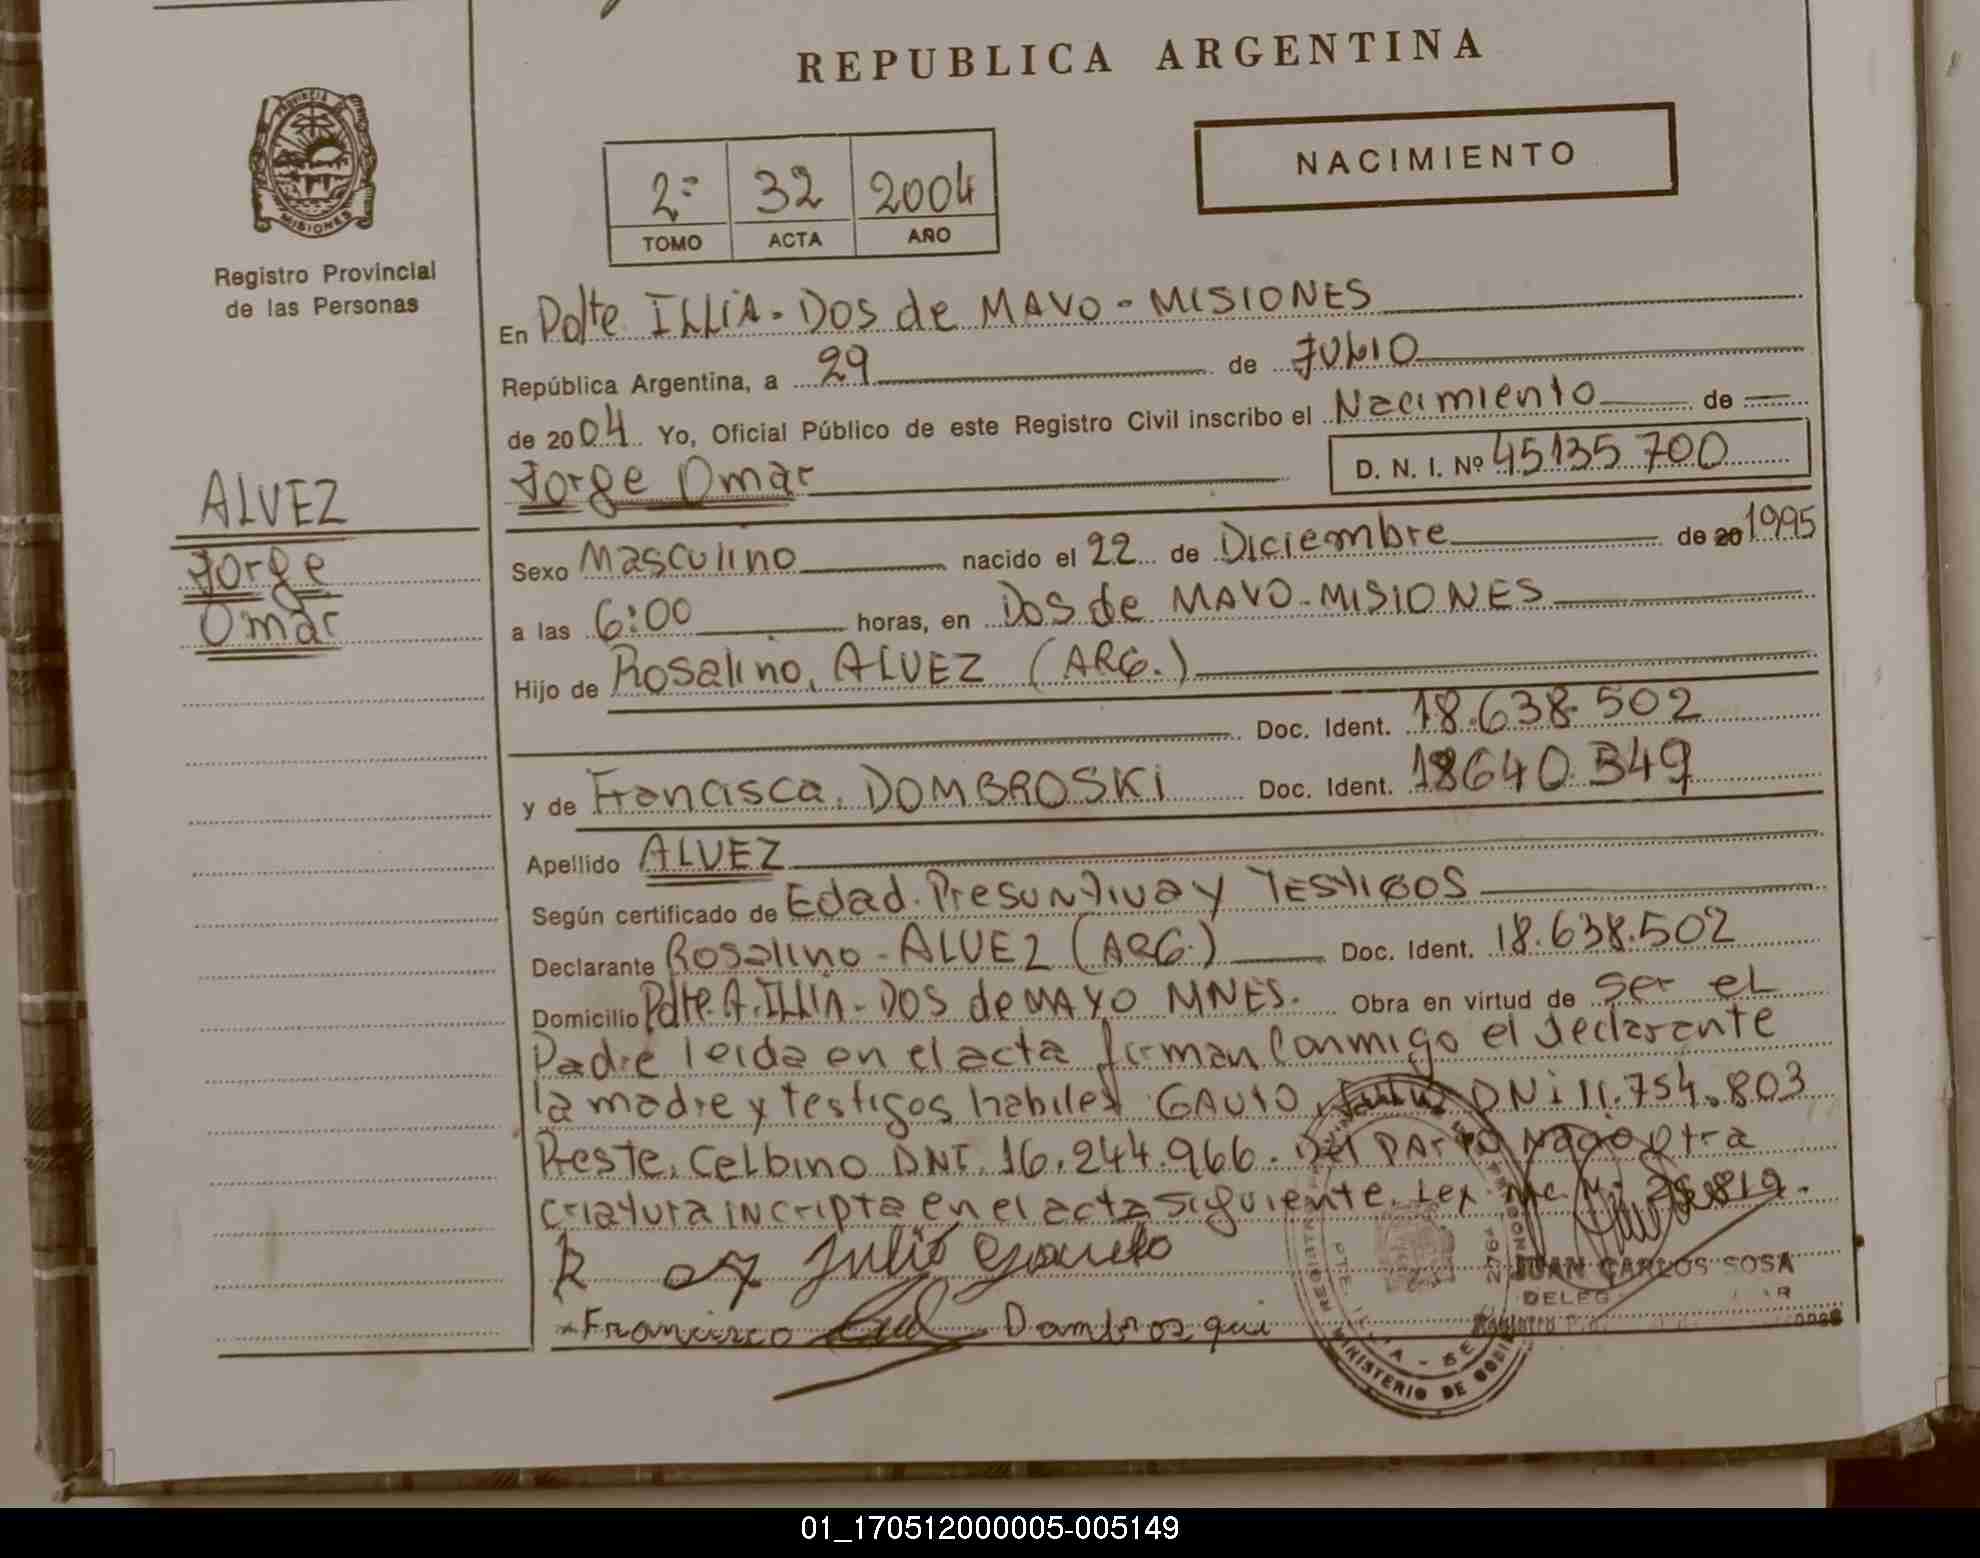 REPUBLICA ARGENTINA
PROVINCIA DE MISIONES
Registro Provincial
de las Personas
2º 32 2004
TOMO ACTA AÑO
NACIMIENTO
En Pdte ILLIA - DOS de MAYO - MISIONES
República Argentina, a 29 de JULIO
de 2004 Yo, Oficial Público de este Registro Civil inscribo el Nacimiento de
Jorge Omar D. N. I. Nº 45135700
ALVEZ
Jorge
Omar
Sexo Masculino nacido el 22 de Diciembre de 20 1995
a las 6:00 horas, en DOS de MAYO - MISIONES
Hijo de Rosalino, ALVEZ (ARG.)
Doc. Ident. 18.638.502
y de Francisca, DOMBROSKI Doc. Ident. 18640349
Apellido ALVEZ
Según certificado de Edad Presuntiva y TESTIGOS
Declarante Rosalino - ALVEZ (ARG.) Doc. Ident. 18.638.502
Domicilio Pdte. A. ILLIA - DOS de MAYO MNES. Obra en virtud de Ser el
Padre leida en el acta firman Conmigo el declarante
la madre y testigos habiles GAUTO, DNI 11.754.803
Preste, Celbino DNI. 16.244.966. Del PARTO Nacio otra
criatura incripta en el acta siguiente. Ley 25.819.
Julio Gauto
Francisco Dombrosqui
JUAN CARLOS SOSA
DELEG
MINISTERIO DE GOBI
01_170512000005-005149